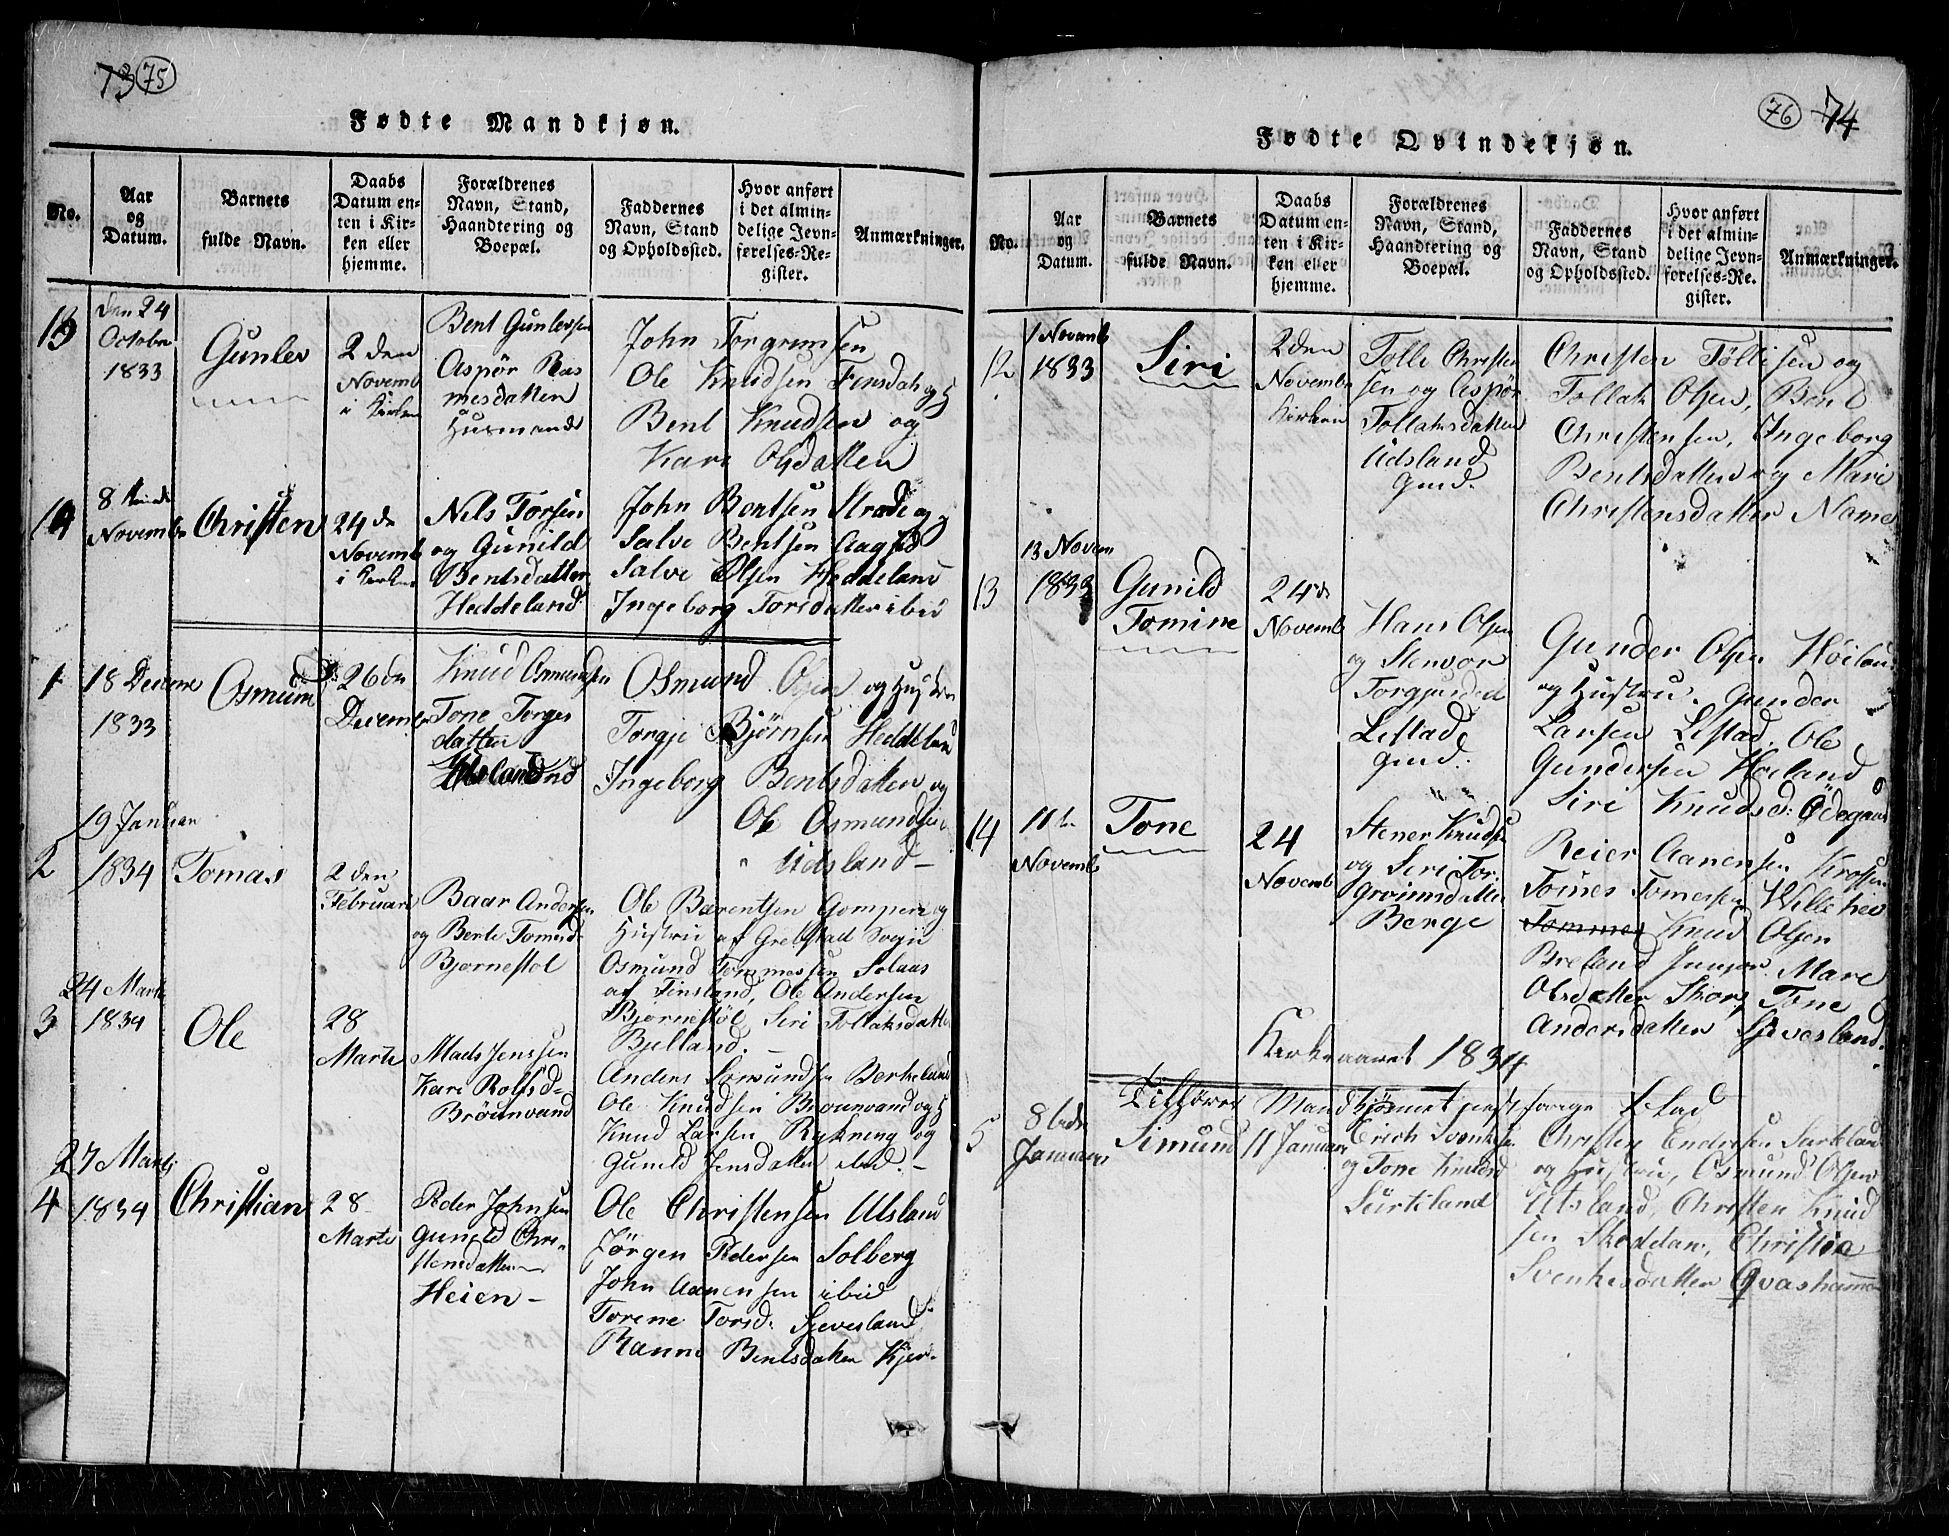 73 75
Fødte Mandkjøn.
No.
Aar og Datum.
Barnets fulde Navn.
Daabs Datum enten i Kirken eller hjemme.
Forældrenes Navn, Stand, Haandtering og Boepæl.
Faddernes Navn, Stand og Opholdssted.
Hvor anført i det almindelige Jevnførelses-Register.
Anmærkninger.
13
den 24
Octobr
1833
Gunlev
2 den
Novemb
i Kirken
Bent Gunlevsen
Aspør Ras
mesdatten
Husmand
John Torgrimsen
Ole Knudsen Finsdal og
Bent Knudsen og
Kari Olsdatten
14
8
Novembr
Christen
24 de
Novemb
i Kirken
Nils Torsen
og Gunild
Bentsdatter
Heddeland
John Bentsen Strædet og
Salve Bentsen
Salve Olsen Heddeland
Ingeborg Torsdatter ibid
1
18 Decemr
1833
Osmund
26 dn
Decembr
Knud Osmundsen
Tone Torges
datten
Osmund Olsen og Hustru
Torgje Bjørnsen Heddeland
Ingeborg Bentsdatten og
Ole Osmundsen
Udsland -
2
19 Januar
1834
Tomas
2 den
Februari
Baar Andersen
og Berte Tomisd
Bjørnestøl
Ole Bærentsen Gompen og
Hustru af Grebstad Sogn
Osmund Tommesen Solaas
af Finsland, Ole Andersen
Bjørnestøl Siri Tollaksdatter
Bjelland. -
3
24 Marti
1834
Ole
28
Marti
Mads Jenssen
Kari Rolfsd-
Brøunvand
Anders Somundsen Berkeland
Ole Knudsen Brounvand og H
Knud Larsen Rykning og
Gunild Jensdatten ibid. -
4
27 Marti
1834
Christian
28
Marti
Peder Johnsen
Gunild Chri-
stensdatten
Heien -
Ole Christensen Utsland
Jørgen Pedersen Solberg
John Aanensen ibid
Torene Torsd: Sjevesland
Ranni Bentsdatten Kjer-
76 74
Fødte Qvindekjøn.
No.
Aar og Datum.
Barnets fulde Navn.
Daabs Datum enten i Kirken eller hjemme.
Forældrenes Navn, Stand, Haandtering og Boepæl.
Faddernes Navn, Stand og Opholdssted.
Hvor anført i det almindelige Jevnførelses-Register.
Anmærkninger.
12
1 Novemb
1833
Siri
2 den
Novembr
Kirken
Tolle Christen
sen og Aspør
Tollaksdatten
Udsland
Christen Tøllisen og
Tollak Olsen, Bent
Christensen, Ingeborg
Bentsdatten og Mari
Christensdatter Nome
13
13 Novem
1833
Gunild
Tomine
24 de
Novemb
Hans Olsen
og Stenvor
Torgjusd
Lestad
Gunder Olsen Høiland
og Hustru. Gunder
Larsen Lestad, Ole
Gundersen Høiland
Siri Knudsd: Ødegaard
14
11 te
Novemb
Tone
24
Novemb
Stener Knudsen
og Seri Tor
grimsdatter
Berge
Reier Aanensen Krossen
Toines Tomessen
Tommes Knud Olsen
Breland Junior Mari
Olsdatten Skors Tone
Andersdatten Sjevesland
Kirkeaaret 1834
Tilhører Mandkjønnet paa forrige Blad
5
8 de
Januari
Simund
11 Januari
Erich Svenksen
og Tone Knudsd
Surtland
Christen Endersen Surtland
og Hustru, Osmund Olsen
Utsland, Christen Knud
sen Skeddan, Christine
Svenkesdatten Qvashamme